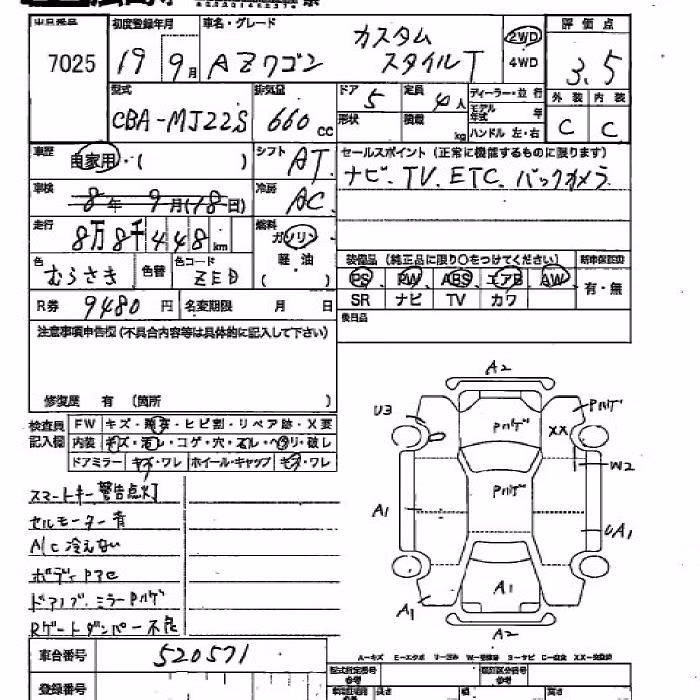 出品番号 初度登録年月 車名・グレード 評価点
7025 19 9月 AZワゴン カスタム スタイルT 2WD 4WD 3.5
型式 排気量 ドア 定員 ディーラー・並行 外装 内装
CBA-MJ22S 660cc 5 4人 モデル年式 年 C C
形状 積載 kg ハンドル 左・右
車歴 自家用・( ) シフト AT セールスポイント (正常に機能するものに限ります)
車検 8年9月(18日) 冷房 AC ナビ.TV.ETC.バックカメラ
走行 8万8千448km 燃料 ガソリン
軽油
( )
色 むらさき 色替 色コード ZED
装備品 (純正品に限り○をつけてください) 新車保証書
PS RW ABS エアB AW 有・無
SR ナビ TV カワ
R券 9480円 名変期限 月 日 後日品
注意事項申告欄 (不具合内容等は具体的に記入して下さい)
修復歴 有 (箇所 )
検査員記入欄 FW キズ・飛石・ヒビ割・リペア跡・X要
内装 キズ・汚レ・コゲ・穴・スレ・ヘタリ・破レ
ドアミラー キズ・ワレ ホイール・キャップ キズ・ワレ
スマートキー警告点灯
セルモーター音
A/C 冷えない
ボディPアC
ドアノブ.ミラーPハゲ
Rゲートダンパー不良
A2
U3
Pハゲ
Pハゲ
XX
W2
Pハゲ
A1
UA1
A1
A1
A2
車台番号 520571
登録番号
型式指定番号 類別区分番号
参考 参考
長さ 幅 高さ